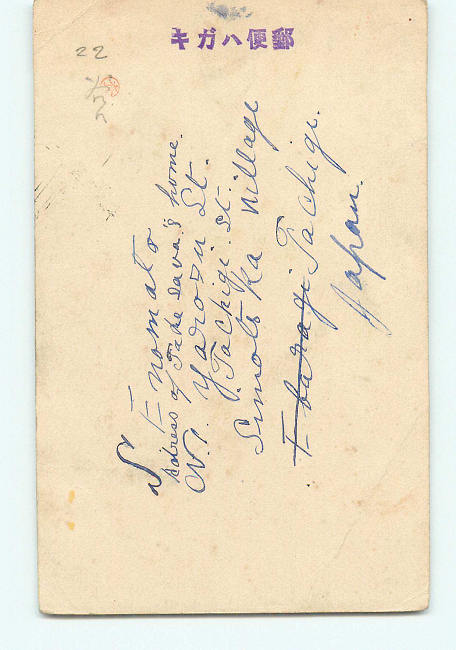 キガハ便郵
22
S Enomato
Adress of Takesava's home.
No. 1. Yaro-u St.
Tachigi St.
Simotska village
Ibaragi Tachigi.
Japan.